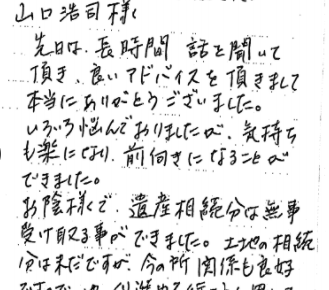 山口浩司様
先日は、長時間 話を聞いて
頂き、良いアドバイスを頂きまして
本当にありがとうございました。
いろいろ悩んでおりましたが、気持ち
も楽になり、前向きになることが
できました。
お陰様で、遺産相続分は無事
受け取る事ができました。土地の相続
分は未だですが、今の所関係も良好